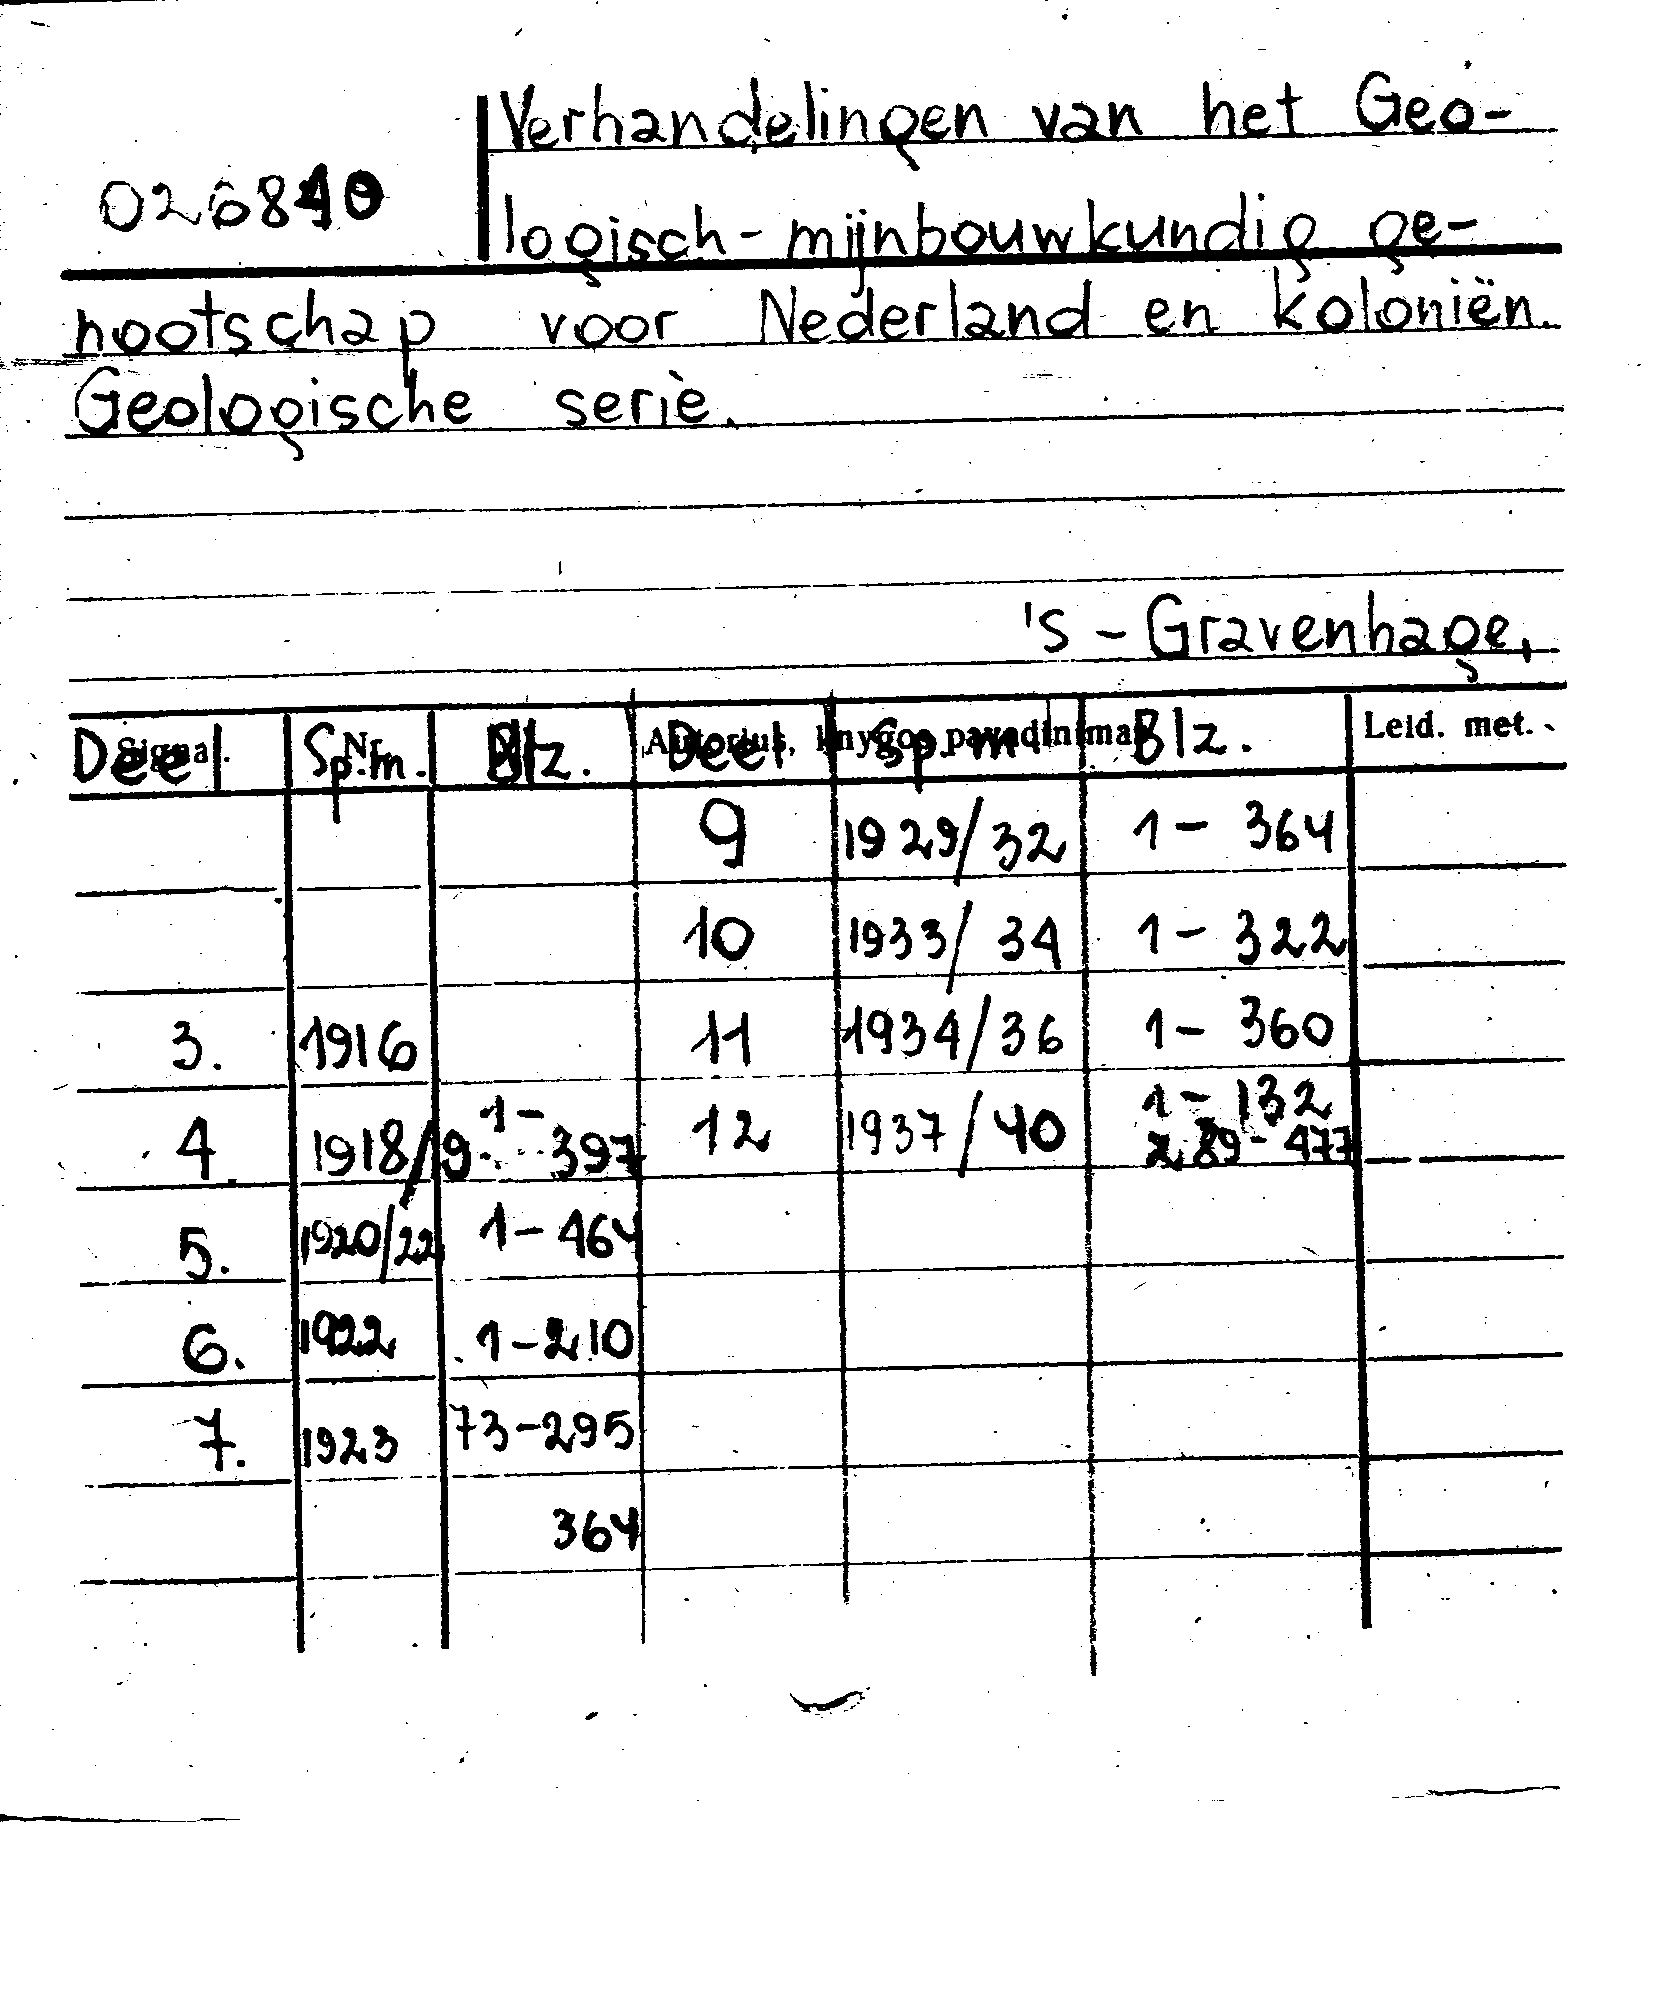 Verhandelingen van het Geo-
026810
logisch-mijnbouwkundig ge-
nootschap voor Nederland en koloniën.
Geologische seriè.
's-Gravenhage,
Deel Sp.m. Blz. Deel Sp.m. Blz. Leid. met.
9 1929/32 1-364
10 1933/34 1-322
3. 1916 11 1934/36 1-360
4. 1918/19 1-397 12 1937/40 1-132
289-477
5. 1920/22 1-464
6. 1922 1-210
7. 1923 73-295
364